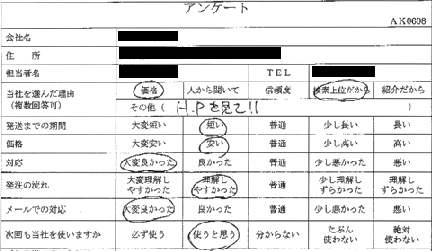 アンケート
AK0608
会社名
住 所
担当者名 TEL
当社を選んだ理由 価格 人から聞いて 信頼度 検索上位だから 紹介だから
(複数回答可) その他( H.Pを見て!! )
発送までの期間 大変短い 短い 普通 少し長い 長い
価格 大変安い 安い 普通 少し高い 高い
対応 大変良かった 良かった 普通 少し悪かった 悪い
発注の流れ 大変理解しやすかった 理解しやすかった 普通 少し理解しずらかった 理解しずらかった
メールでの対応 大変良かった 良かった 普通 少し悪かった 悪い
次回も当社を使いますか 必ず使う 使うと思う 分からない たぶん使わない 絶対使わない